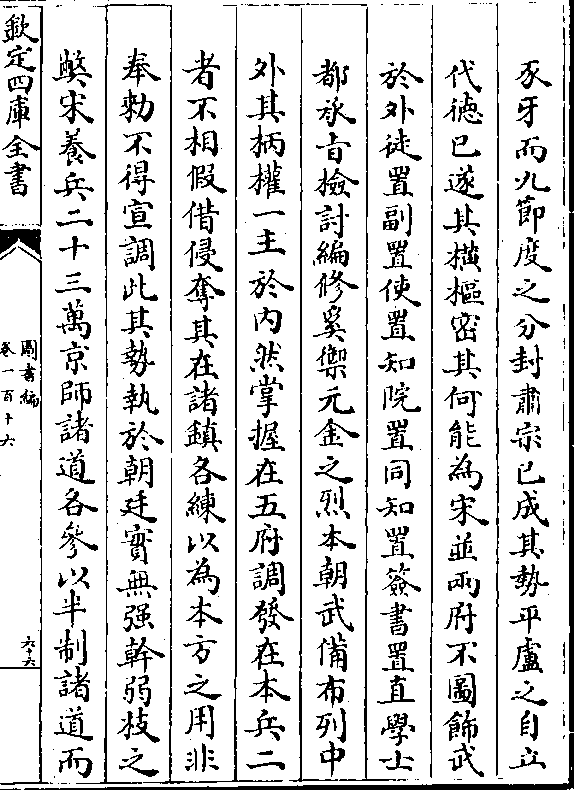 豕牙而九節度之分封肅宗已成其勢平盧之自立
代德已遂其橫樞密其何能為宋並兩府不圖飾武
於外徒置副置使置知院置同知置簽書置直學士
都承旨檢討編修奚禦元金之烈本朝武備布列中
外其柄權一主於內然掌握在五府調發在本兵二
者不相假借侵奪其在諸鎮各練以為本方之用非
奉勅不得宣調此其勢執於朝廷實無强幹弱枝之
弊宋養兵二十三萬京師諸道各參以半制諸道而
欽定四庫全書
圖書編
卷一百十六
六十六